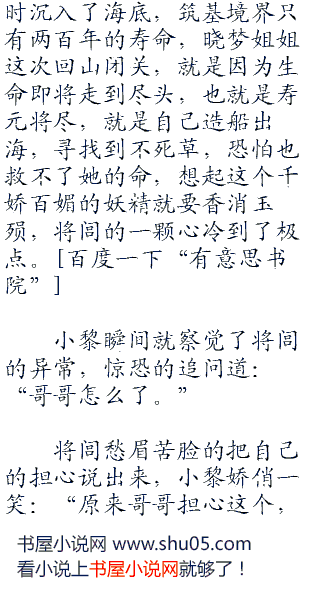 时沉入了海底，筑基境界只
有两百年的寿命，晓梦姐姐
这次回山闭关，就是因为生
命即将走到尽头，也就是寿
元将尽，就是自己造船出
海，寻找到不死草，恐怕也
救不了她的命，想起这个千
娇百媚的妖精就要香消玉
殒，将闾的一颗心冷到了极
点。[百度一下“有意思书
院”]
小黎瞬间就察觉了将闾
的异常，惊恐的追问道：
“哥哥怎么了。”
将闾愁眉苦脸的把自己
的担心说出来，小黎娇俏一
笑：“原来哥哥担心这个，
书屋小说网 www.shu05.com
看小说上书屋小说网就够了！